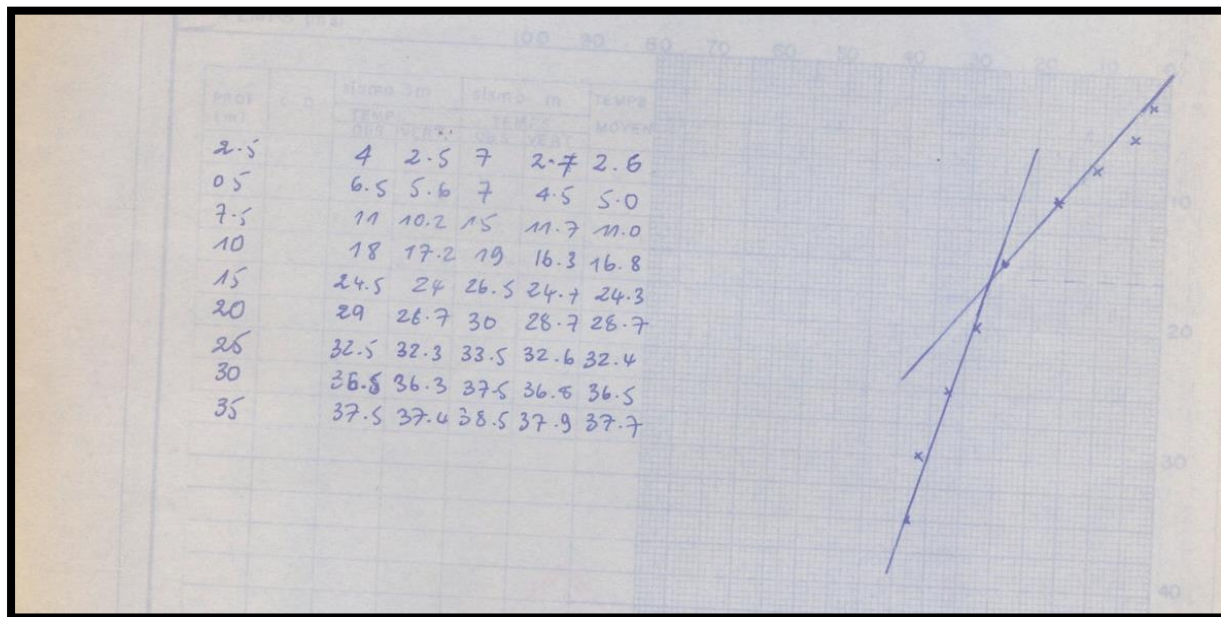 TEMPS (ms)
100 90 80 70 60 50 40 30 20 10 0
PROF sismo 3m sismo m TEMPS
(m) TEMPS TEMPS MOYEN
OBS VERT OBS VERT
2.5 4 2.5 7 2.7 2.6
05 6.5 5.6 7 4.5 5.0
7.5 11 10.2 15 11.7 11.0
10 18 17.2 19 16.3 16.8
15 24.5 24 26.5 24.7 24.3
20 29 28.7 30 28.7 28.7
25 32.5 32.3 33.5 32.6 32.4
30 36.5 36.3 37.5 36.8 36.5
35 37.5 37.4 38.5 37.9 37.7
10
20
30
40